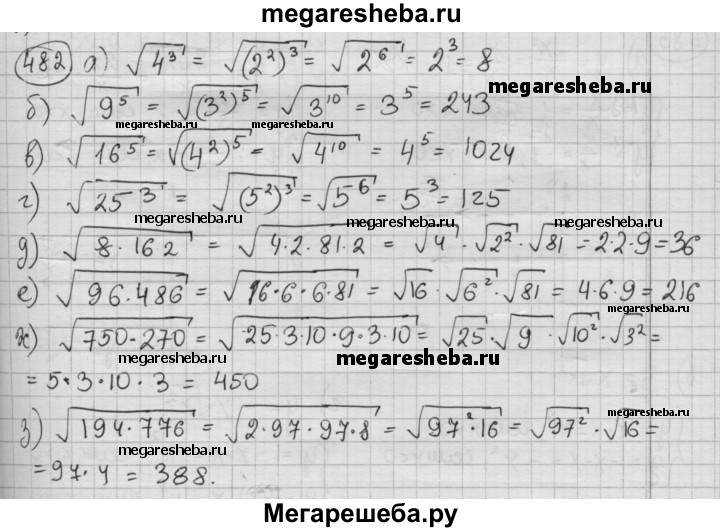 megaresheba.ru
482 а) √4³ = √(2²)³ = √2⁶ = 2³ = 8
megaresheba.ru
б) √9⁵ = √(3²)⁵ = √3¹⁰ = 3⁵ = 243
megaresheba.ru megaresheba.ru
в) √16⁵ = √(4²)⁵ = √4¹⁰ = 4⁵ = 1024
г) √25³ = √(5²)³ = √5⁶ = 5³ = 125
megaresheba.ru megaresheba.ru
д) √8·162 = √4·2·81·2 = √4 · √2² · √81 = 2·2·9 = 36
megaresheba.ru
е) √96·486 = √16·6·6·81 = √16 · √6² · √81 = 4·6·9 = 216
megaresheba.ru
ж) √750·270 = √25·3·10·9·3·10 = √25 · √9 · √10² · √3² =
megaresheba.ru megaresheba.ru
= 5·3·10·3 = 450
megaresheba.ru
з) √194·776 = √2·97·97·8 = √97²·16 = √97² · √16 =
megaresheba.ru
= 97·4 = 388.
Мегарешеба.ру